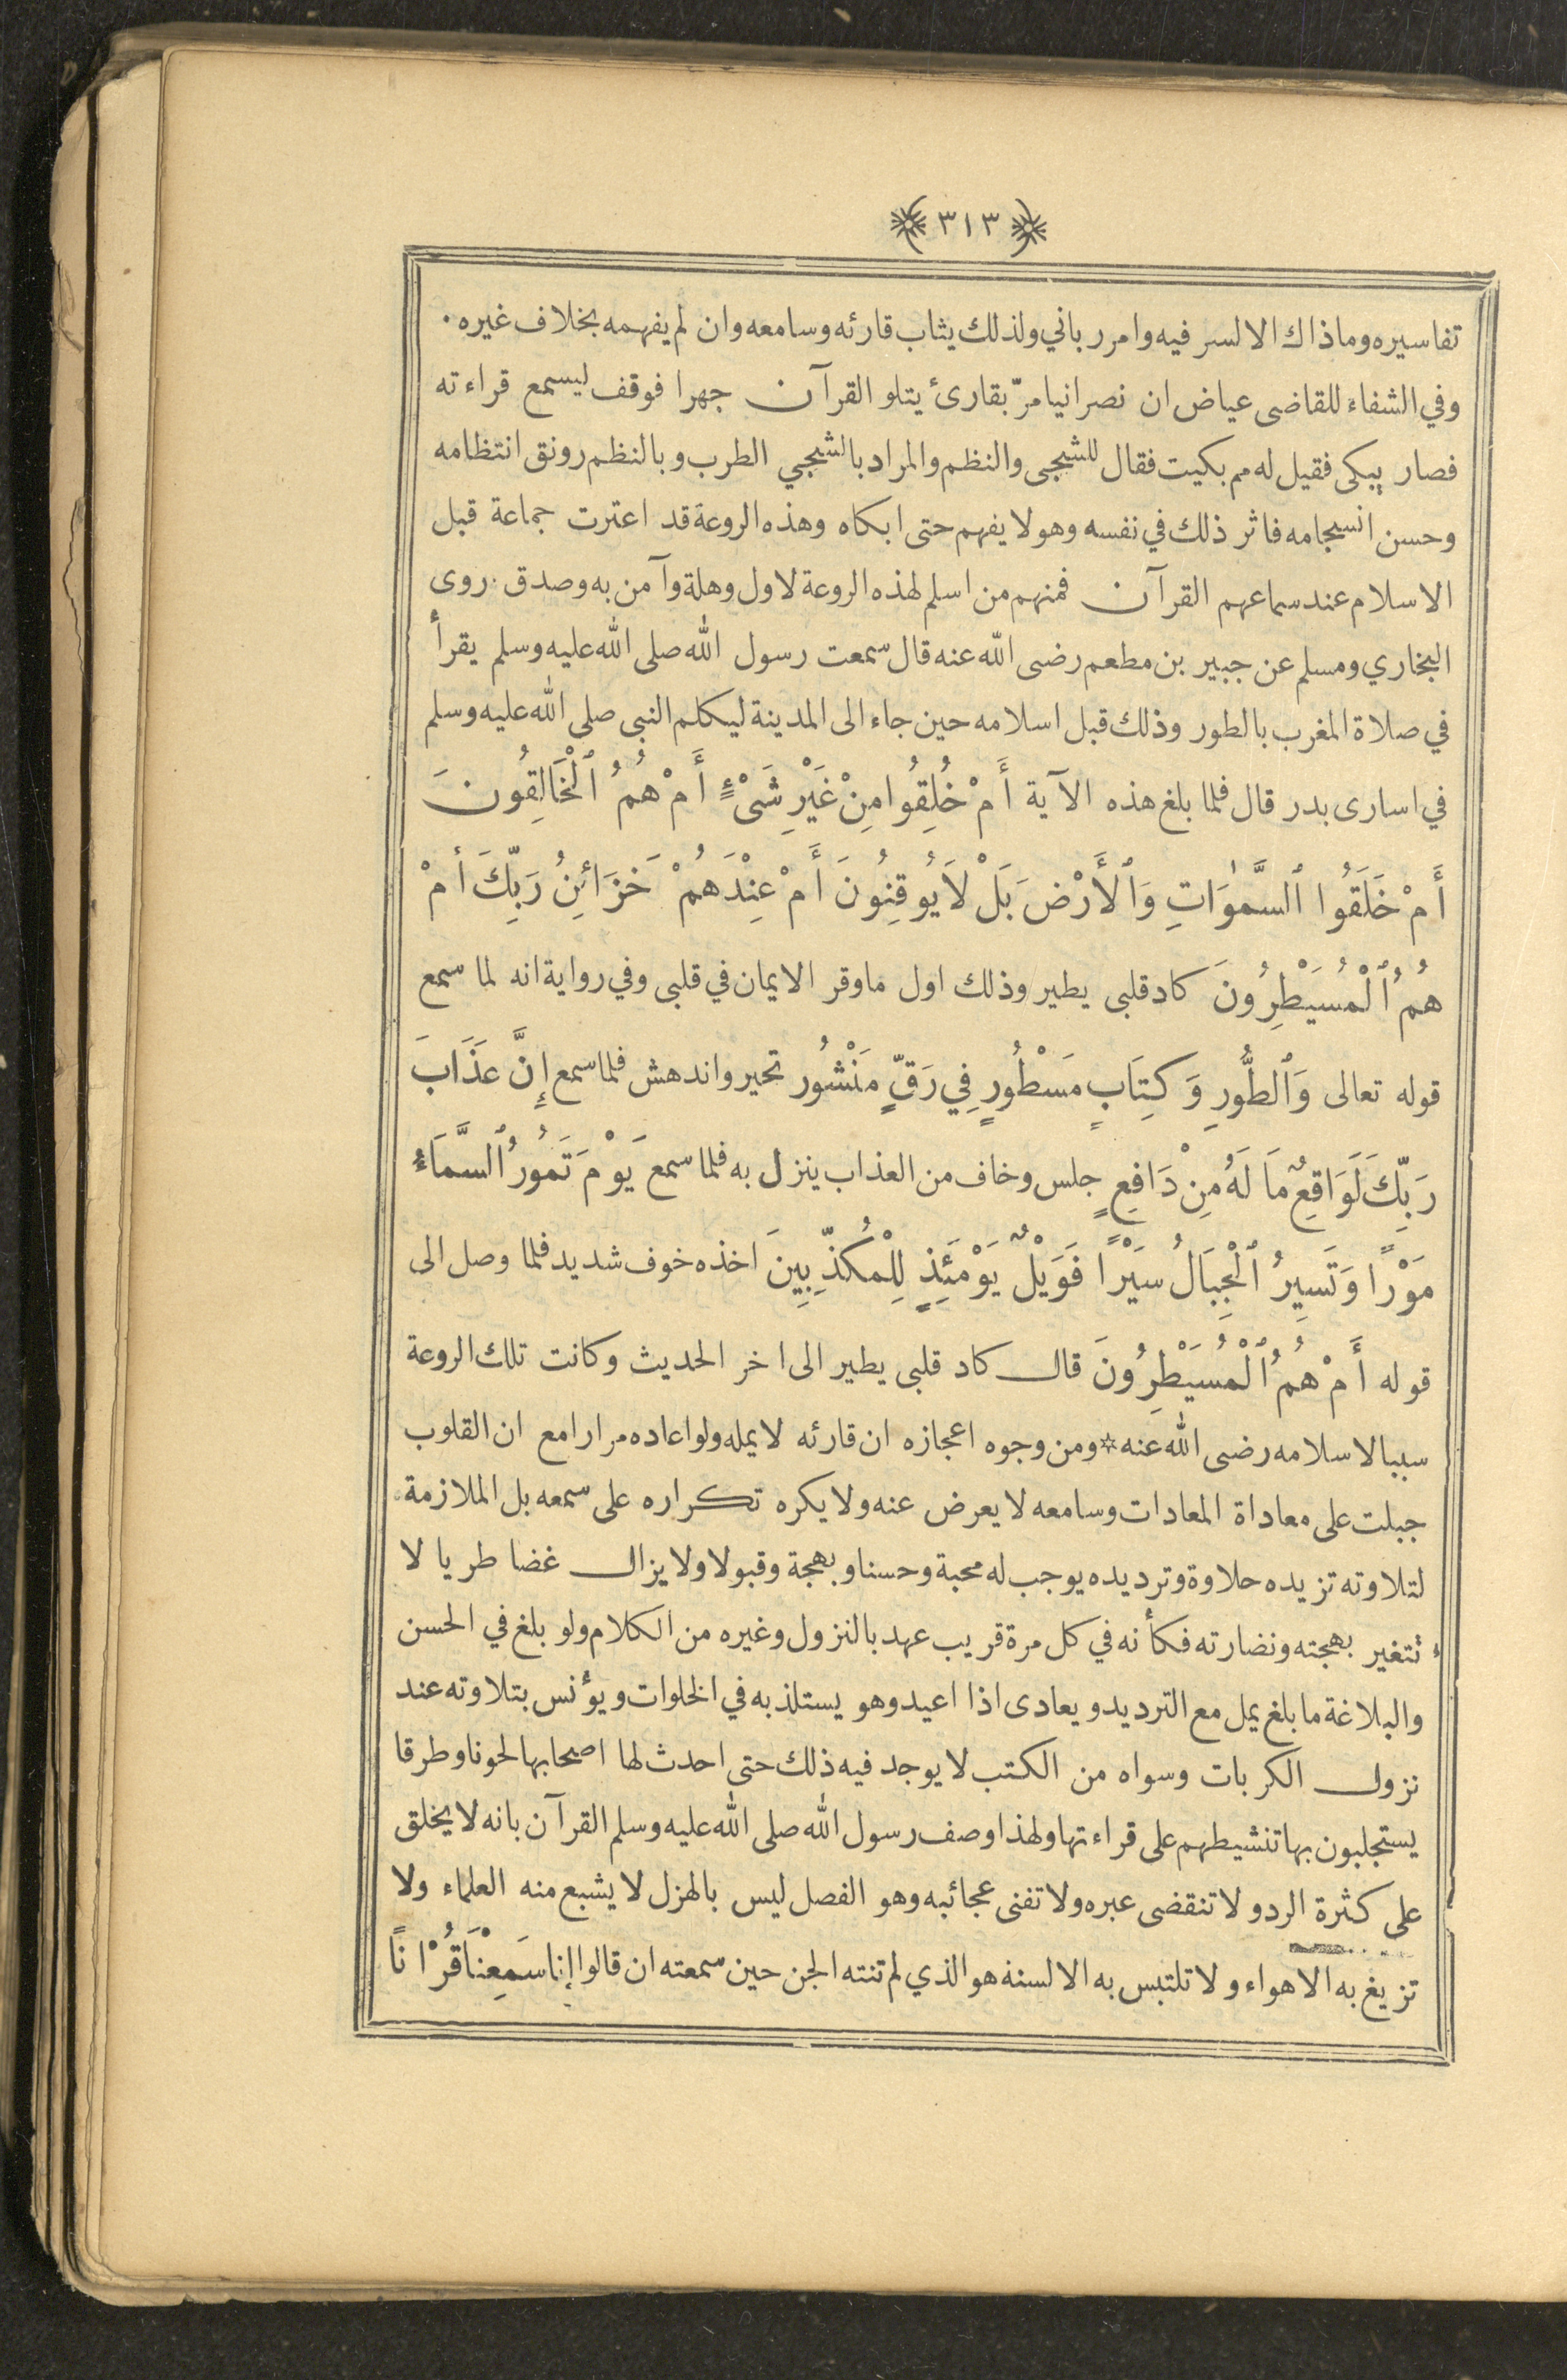 ﴿٣١٣﴾
تفاسيره وما ذاك الا لسر فيه وامر رباني ولذلك يثاب قارئه وسامعه وان لم يفهمه بخلاف غيره٠
وفي الشفاء للقاضى عياض ان نصرانيا مرّ بقارئ يتلو القرآن جهرا فوقف ليسمع قراءته
فصار يبكى فقيل له مم بكيت فقال للشجى والنظم والمراد بالشجي الطرب وبالنظم رونق انتظامه
وحسن انسجامه فاثر ذلك في نفسه وهو لا يفهم حتى ابكاه وهذه الروعة قد اعترت جماعة قبل
الاسلام عند سماعهم القرآن فمنهم من اسلم لهذه الروعة لاول وهلة وآمن به وصدق٠ روى
البخاري ومسلم عن جبير بن مطعم رضى الله عنه قال سمعت رسول الله صلى الله عليه وسلم يقرأ
في صلاة المغرب بالطور وذلك قبل اسلامه حين جاء الى المدينة ليكلم النبى صلى الله عليه وسلم
في اسارى بدر قال فلما بلغ هذه الآية أَمْ خُلِقُوا مِنْ غَيْرِ شَىْءٍ أَمْ هُمُ ٱلْخَالِقُونَ
أَمْ خَلَقُوا ٱلسَّمٰوَاتِ وَٱلْأَرْضَ بَلْ لاَ يُوقِنُونَ أَمْ عِنْدَهُمْ خَزَائِنُ رَبِّكَ أمْ
هُمُ ٱلْمُسَيْطِرُونَ كاد قلبى يطير وذلك اول ما وقر الايمان في قلبى وفي رواية انه لما سمع
قوله تعالى وَٱلطُّورِ وَكِتَابٍ مَسْطُورٍ فِي رَقٍّ مَنْشُور تحير واندهش فلما سمع إِنَّ عَذَابَ
رَبِّكَ لَوَاقِعٌ مَا لَهُ مِنْ دَافِعٍ جلس وخاف من العذاب ينزل به فلما سمع يَوْمَ تَمُورُ ٱلسَّمَاءُ
مَوْرًا وَتَسِيرُ ٱلْجِبَالُ سَيْرًا فَوَيْلٌ يَوْمَئِذٍ لِلْمُكَذِّبِينَ اخذه خوف شديد فلما وصل الى
قوله أَمْ هُمُ ٱلْمُسَيْطِرُونَ قال كاد قلبى يطير الى اخر الحديث وكانت تلك الروعة
سببا لاسلامه رضى الله عنه * ومن وجوه اعجازه ان قارئه لا يمله ولو اعاده مرارا مع ان القلوب
جبلت على معاداة المعادات وسامعه لا يعرض عنه ولا يكره تكراره على سمعه بل الملازمة
لتلاوته تزيده حلاوة وترديده يوجب له محبة وحسنا وبهجة وقبولا ولا يزال غضا طريا لا
تتغير بهجته ونضارته فكأنه في كل مرة قريب عهد بالنزول وغيره من الكلام ولو بلغ في الحسن
والبلاغة ما بلغ يمل مع الترديد ويعادى اذا اعيد وهو يستلذ به في الخلوات ويؤنس بتلاوته عند
نزول الكربات وسواه من الكتب لا يوجد فيه ذلك حتى احدث لها اصحابها لحونا وطرقا
يستجلبون بها تنشيطهم على قراءتها ولهذا وصف رسول الله صلى الله عليه وسلم القرآن بانه لا يخلق
على كثرة الرد ولا تنقضى عبره ولا تفنى عجائبه وهو الفصل ليس بالهزل لا يشبع منه العلماء ولا
تزيغ به الاهواء ولا تلتبس به الالسنة هو الذي لم تنته الجن حين سمعته ان قالوا إنا سَمِعْنَا قُرْانًا